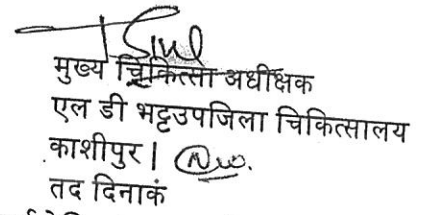 मुख्य चिकित्सा अधीक्षक
एल डी भट्टउपजिला चिकित्सालय
काशीपुर |
तद दिनाकं